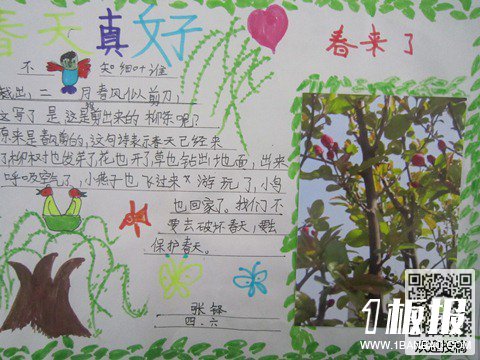 春天真好
春来了
不 知细叶谁
裁出,二 月春风似剪刀,
写了是 这是剪出来的柳条呢?
原来是春风剪的,这句诗表示春天已经来
了柳树也发芽了花也开了草也钻出地面,出来
呼吸空气了,小燕子也飞过来游玩了,小鸟
也回家了,我们不
要去破坏春天,要去
保护春天。
张铎
四.六
1板报
WWW.1BANBAO.COM